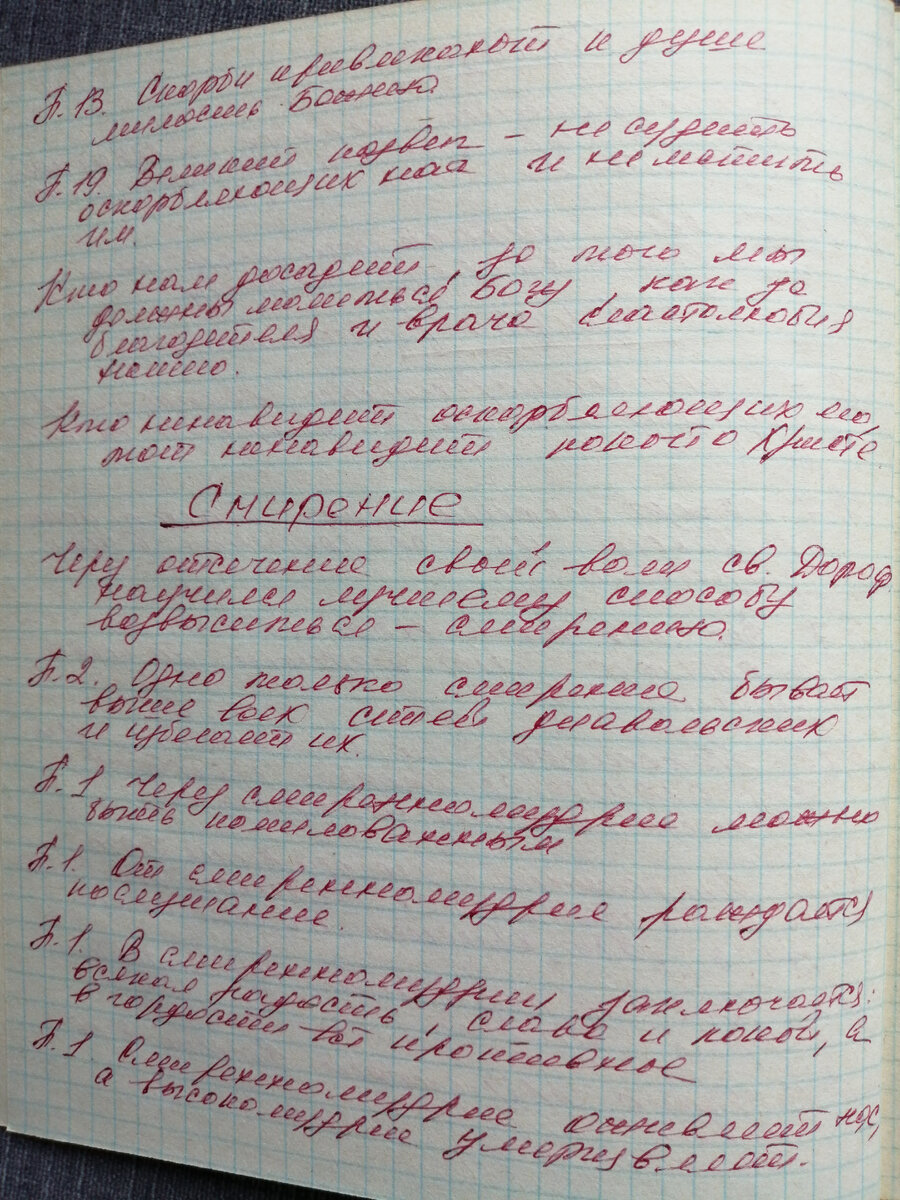 П.13. Скорби привлекают к душе
милость Божию.
П.19. Великий подвиг – не судить
оскорбляющих нас и не мстить
им.
Кто нам досадит, за того мы
должны молиться Богу как за
благодетеля и врача сластолюбия
нашего.
Кто ненавидит оскорбляющих его,
тот ненавидит кокого Христе
Смирение
Через отсечение своей воли св. Дороф.
научился лучшему способу
возвыситься – смирению.
П.2. Одно только смирение бывает
выше всех сетей диавольских
и избегает их.
П.1 Через смиренномудрие можно
быть помилованным
П.1. От смиренномудрие рождается
послушание
П.1. В смиренномудрии заключается:
всякая радость, слава и покой, а
в гордости всё противное
П.1. Смиренномудрие оживляет нас,
а высокомудрие умерщвляет.